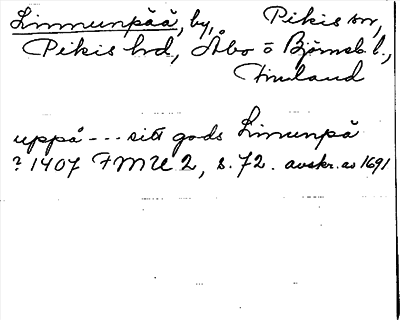 Linnunpää, by, Pikis sn,
Pikis hd, Åbo o Björneb. l.,
Finland
uppå --- sitt gods Linnunpä
? 1407 FMU 2, s. 72. avskr. av 1691